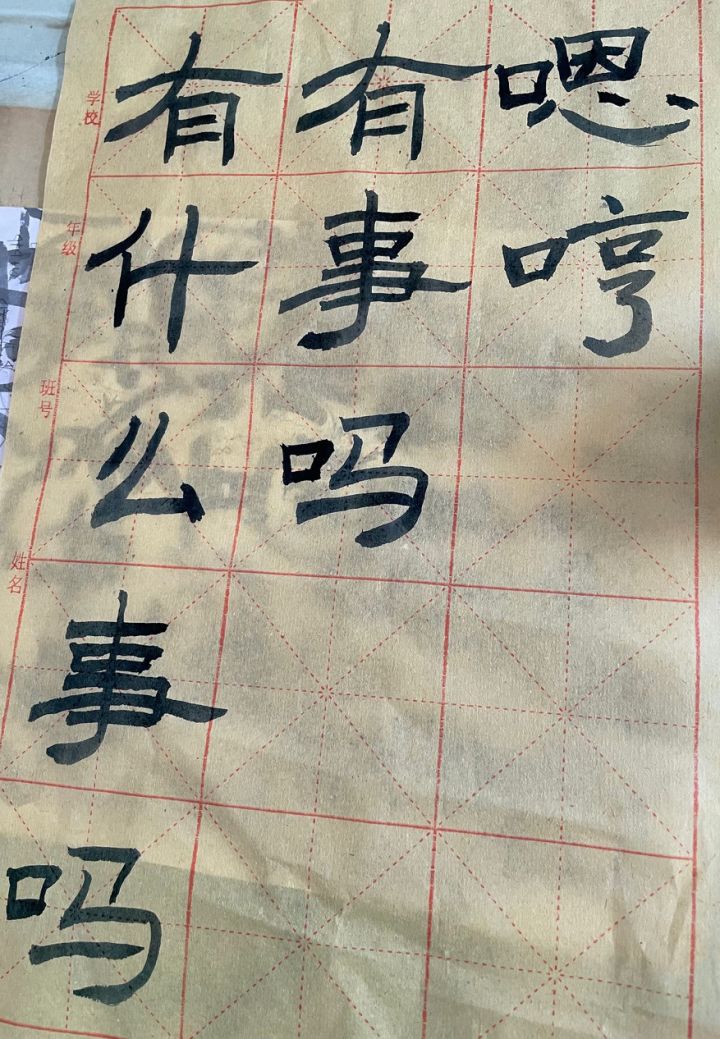 嗯哼
有事吗
有什么事吗
学校 年级 班号 姓名